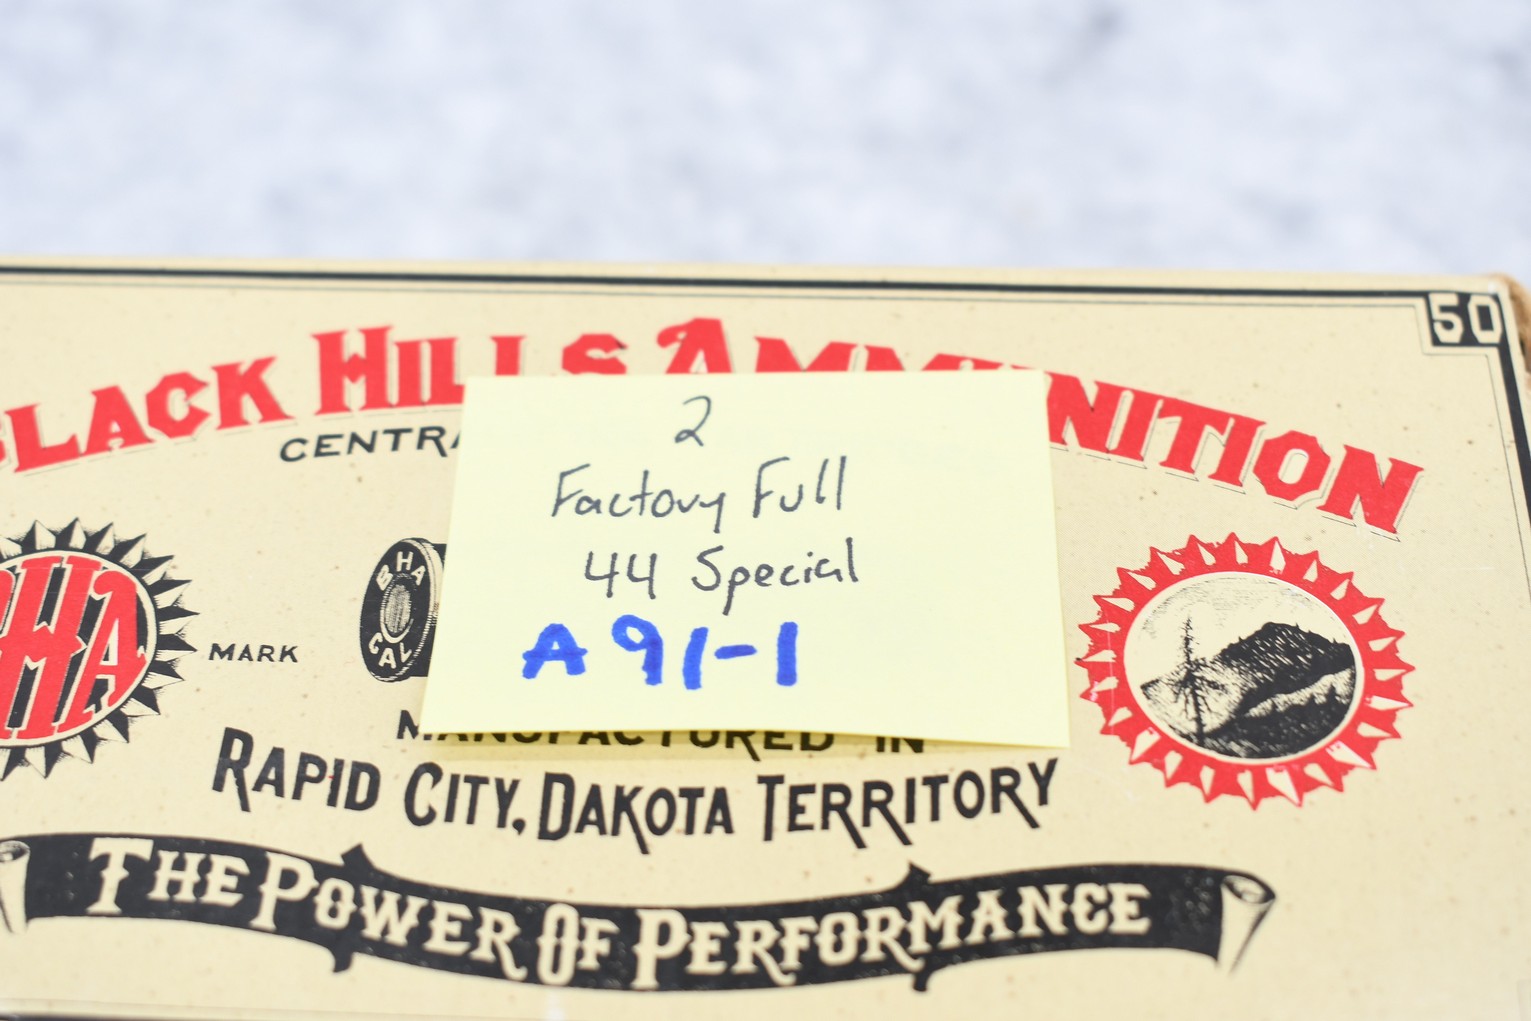 50
BLACK HILLS AMMUNITION
2
Factory Full
44 Special
A 91-1
BHA
MARK
BHA
CAL
MANUFACTURED IN
RAPID CITY, DAKOTA TERRITORY
THE POWER OF PERFORMANCE